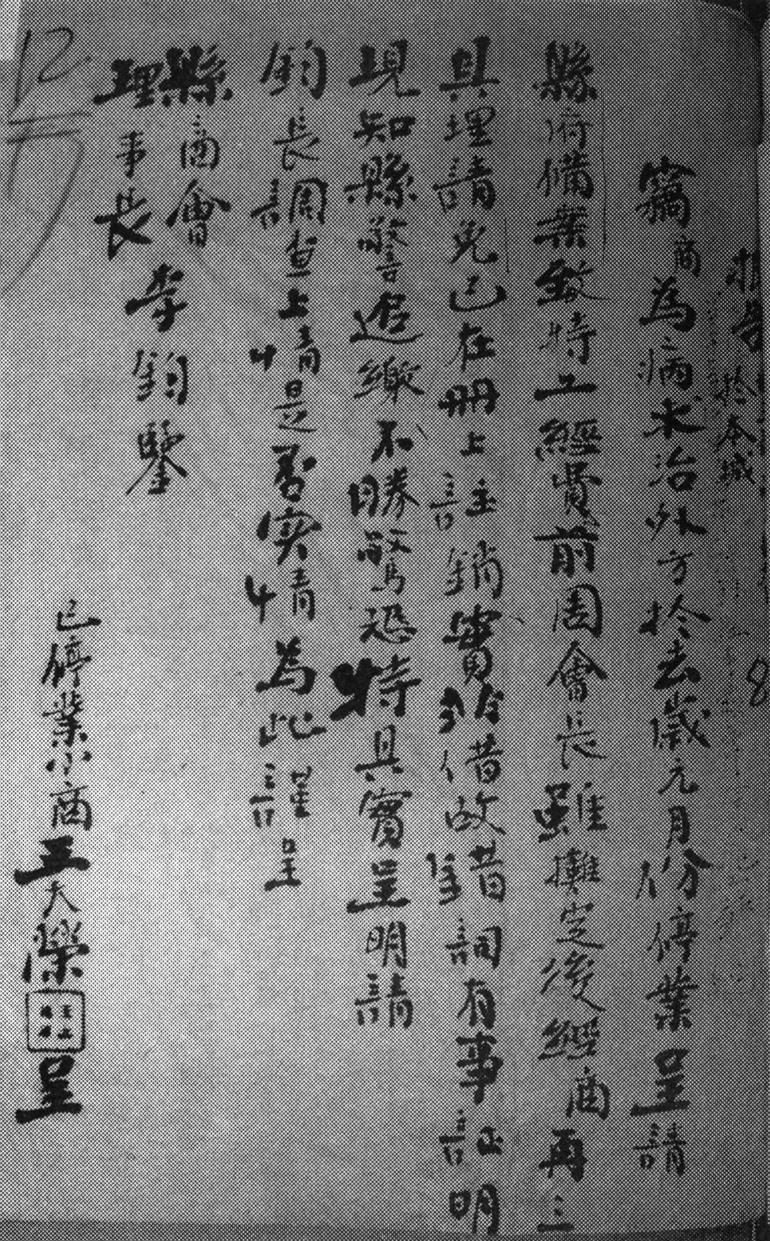 於本城
竊商為病求治外方於去歲元月份停業呈請
縣府備案致特工經費前周會長雖攤定後經商再三
具埋請免已在冊上註銷實非借故借詞有事證明
現知縣警追繳不勝驚恐特具實呈明請
鈞長調查上情是否實情為此謹呈
縣商會
理事長
李鈞鑒
已停業小商王天榮呈